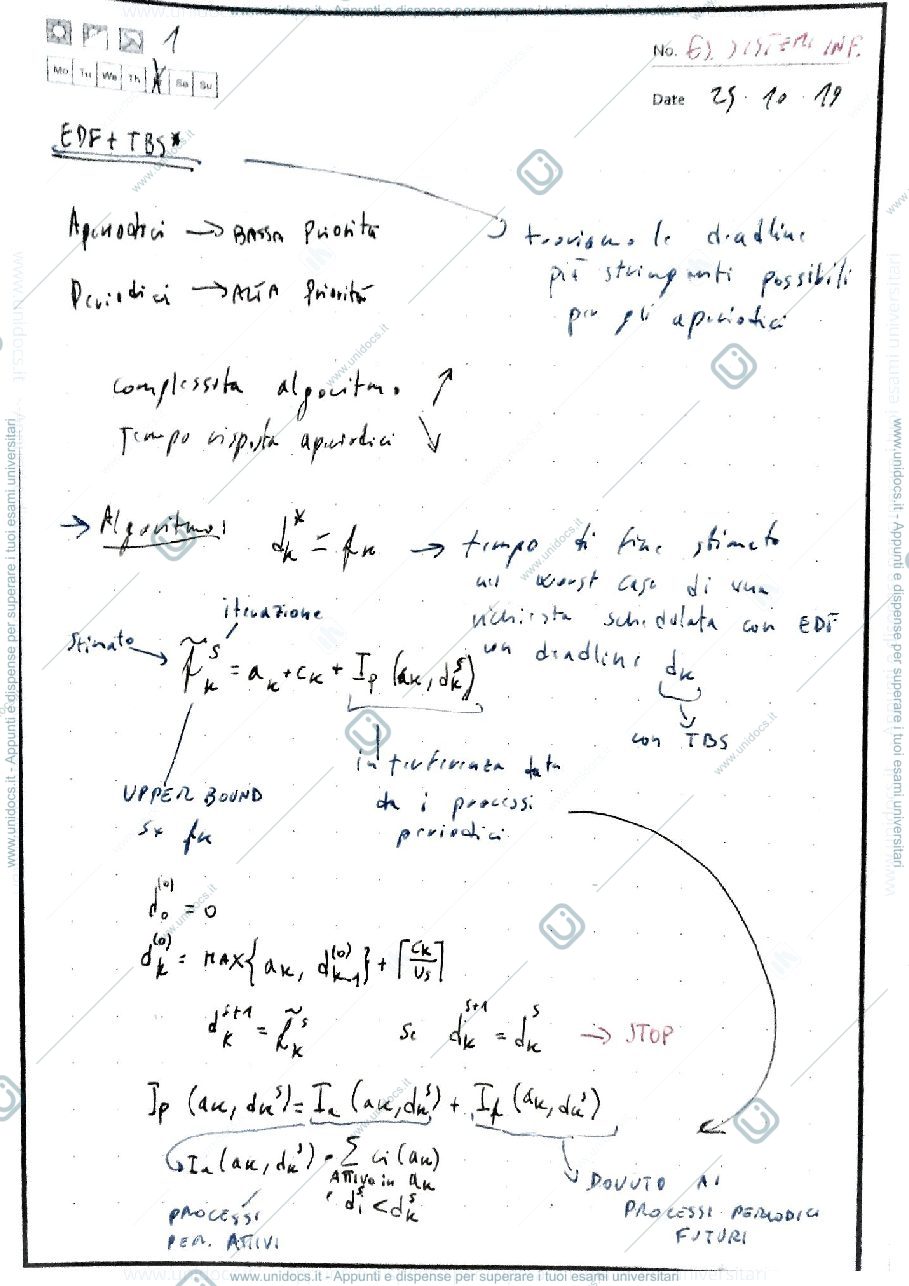 www.unidocs.it - Appunti e dispense per superare i tuoi esami universitari
1
No. ES. SISTEMI INF.
Mo Tu We Th X Sa Su
Date 25 · 10 · 19
EDF + TBS*
Aperiodici → BASSA Priorità
Periodici → ALTA Priorità
troviamo le deadline
più stringenti possibili
per gli aperiodici
complessità algoritmo ↗
Tempo risposta aperiodici ↘
→ Algoritmo:
d*k = fk → tempo di fine stimato
nel worst case di una
richiesta schedulata con EDF
con deadline dk
con TBS
iterazione
stimato →
f̃k^s = ak + ck + Ip (ak, dk^s)
UPPER BOUND
su fk
interferenza data
da i processi
periodici
d0^(0) = 0
dk^(0) = MAX{ak, dk-1^(0)} + ⌈ck/Us⌉
dk^s+1 = f̃k^s se dk^s+1 = dk^s → STOP
Ip (ak, dk^s) = Ia (ak, dk^s) + If (ak, dk^s)
Ia (ak, dk^s) = Σ ci (ak)
Attivo in ak
di^s < dk^s
PROCESSI
PER. ATTIVI
DOVUTO AI
PROCESSI PERIODICI
FUTURI
www.unidocs.it - Appunti e dispense per superare i tuoi esami universitari